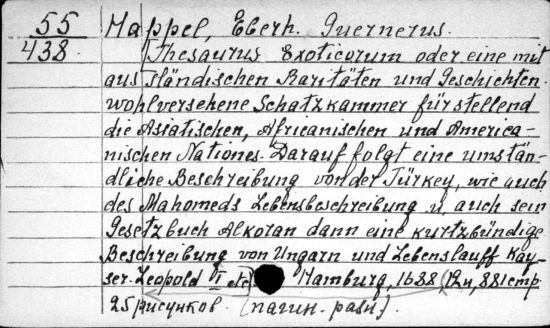 55 Happel, Eberh. Guernerus.
438 Thesaurus Exoticorum oder eine mit
aus Sländischen Raritäten und Geschichten
wohlversehene Schatzkammer fürstellend
die Asiatischen, Africanischen und America-
nischen Nationes. Darauf folgt eine umstän-
dliche Beschreibung von der Türkey, wie auch
des Mahomeds Lebensbeschreibung u. auch sein
Gesetzbuch Alkoran dann eine kurtzbündige
Beschreibung von Ungarn und Lebenslauff Kay-
ser Leopold VI etc) Hamburg, 1688 (12 н, 881 стр
25 рисунков. (пагин. разн).